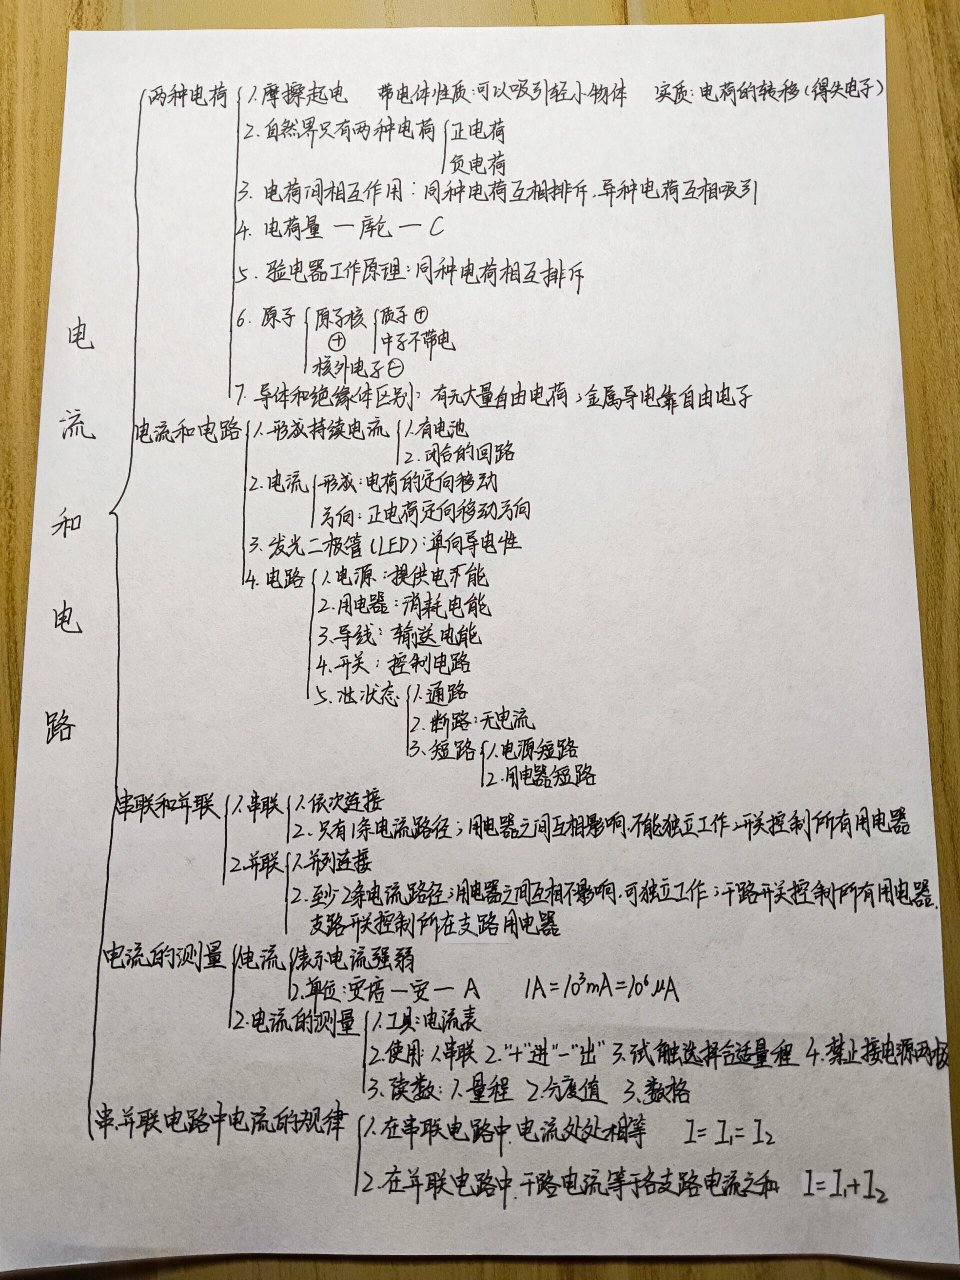 电流和电路
两种电荷 1.摩擦起电 带电体性质:可以吸引轻小物体 实质:电荷的转移(得失电子)
2.自然界只有两种电荷 正电荷
负电荷
3.电荷间相互作用:同种电荷互相排斥,异种电荷互相吸引
4.电荷量—库仑—C
5.验电器工作原理:同种电荷相互排斥
6.原子 原子核 质子⊕
⊕ 中子不带电
核外电子⊖
7.导体和绝缘体区别:有无大量自由电荷;金属导电靠自由电子
电流和电路 1.形成持续电流 1.有电池
2.闭合的回路
2.电流 形成:电荷的定向移动
方向:正电荷定向移动方向
3.发光二极管(LED):单向导电性
4.电路 1.电源:提供电能
2.用电器:消耗电能
3.导线:输送电能
4.开关:控制电路
5.状态 1.通路
2.断路:无电流
3.短路 1.电源短路
2.用电器短路
串联和并联 1.串联 1.依次连接
2.只有1条电流路径;用电器之间互相影响,不能独立工作;开关控制所有用电器
2.并联 1.并列连接
2.至少2条电流路径;用电器之间互相不影响,可独立工作;干路开关控制所有用电器,
支路开关控制所在支路用电器
电流的测量 1.电流 1.表示电流强弱
2.单位:安培—安—A 1A=10³mA=10⁶μA
2.电流的测量 1.工具:电流表
2.使用:1.串联 2."+"进"-"出" 3.试触选择合适量程 4.禁止接电源两极
3.读数:1.量程 2.分度值 3.数格
串并联电路中电流的规律 1.在串联电路中,电流处处相等 I=I₁=I₂
2.在并联电路中,干路电流等于各支路电流之和 I=I₁+I₂